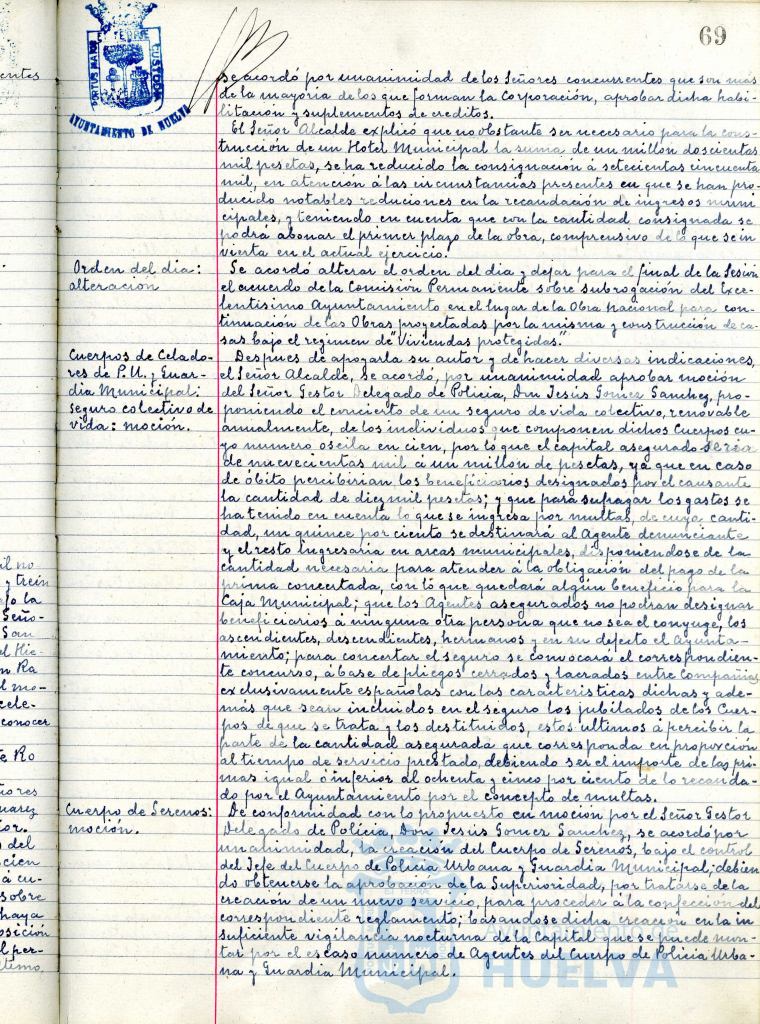 69
PORTUS MARIS ET TERRE CUSTODIA
AYUNTAMIENTO DE HUELVA
se acordó por unanimidad de los Señores concurrentes que son mas
de la mayoria de los que forman la Corporación, aprobar dicha habi-
litación y suplementos de creditos.
El Señor Alcalde explicó que no obstante ser necesario para la cons-
trucción de un Hotel Municipal la suma de un millon doscientas
mil pesetas, se ha reducido la consignación á setecientas cincuenta
mil, en atención á las circunstancias presentes en que se han pro-
ducido notables reduciones en la recaudación de ingresos muni-
cipales, y teniendo en cuenta que con la cantidad consignada se
podrá abonar el primer plazo de la obra, comprensivo de lo que se in-
vierta en el actual ejercicio.
Orden del dia:
alteracion
Se acordó alterar el orden del dia y dejar para el final de la Sesión
el acuerdo de la Comisión Permanente sobre subrogación del Exce-
lentisimo Ayuntamiento en el lugar de la Obra Nacional para con-
tinuación de las Obras proyectadas por la misma y construcción de ca-
sas bajo el regimen de "Viviendas protegidas."
Cuerpos de Celado-
res de P.U. y Guar-
dia Municipal:
seguro colectivo de
vida: moción.
Despues de apoyarla su autor y de hacer diversas indicaciones,
el Señor Alcalde, se acordó, por unanimidad aprobar moción
del Señor Gestor Delegado de Policia, Don Jesús Gomez Sanchez, pro-
poniendo el concierto de un seguro de vida colectivo, renovable
anualmente, de los individuos que componen dichos Cuerpos cu-
yo numero oscila en cien, por lo que el capital asegurado seria
de nuevecientas mil a un millon de pesetas, ya que en caso
de óbito percibirian los beneficiarios designados por el causante
la cantidad de diez mil pesetas; y que para sufragar los gastos se
ha tenido en cuenta lo que se ingresa por multas, de cuya canti-
dad, un quince por ciento se destinará al Agente denunciante
y el resto ingresaria en arcas municipales, disponiendose de la
cantidad necesaria para atender á la obligación del pago de la
prima concertada, con lo que quedará algún beneficio para la
Caja Municipal; que los Agentes asegurados no podran designar
beneficiarios á ninguna otra persona que no sea el conyuge, los
ascendientes, descendientes, hermanos y en su defecto el Ayunta-
miento; para concertar el seguro se convocará el correspondien-
te concurso, á base de pliegos cerrados y lacrados entre Compañias
exclusivamente españolas con las caracteristicas dichas y ade-
más que sean incluidos en el seguro los jubilados de los Cuer-
pos de que se trata y los destituidos, estos ultimos á percibir la
parte de la cantidad asegurada que corresponda en proporción
al tiempo de servicio prestado, debiendo ser el importe de las pri-
mas igual ó inferior al ochenta y cinco por ciento de lo recauda-
do por el Ayuntamiento por el concepto de multas.
Cuerpo de Serenos:
moción.
De conformidad con lo propuesto en moción por el Señor Gestor
Delegado de Policia, Don Jesús Gomez Sanchez, se acordó por
unanimidad, la creación del Cuerpo de Serenos, bajo el control
del Jefe del Cuerpo de Policia Urbana y Guardia Municipal; debien-
do obtenerse la aprobación de la Superioridad, por tratarse de la
creación de un nuevo servicio, para proceder á la confección del
correspondiente reglamento; basandose dicha creación en la in-
suficiente vigilancia nocturna de la Capital que se puede mon-
tar por el escaso numero de Agentes del Cuerpo de Policia Urba-
na y Guardia Municipal.
Ayuntamiento de
HUELVA